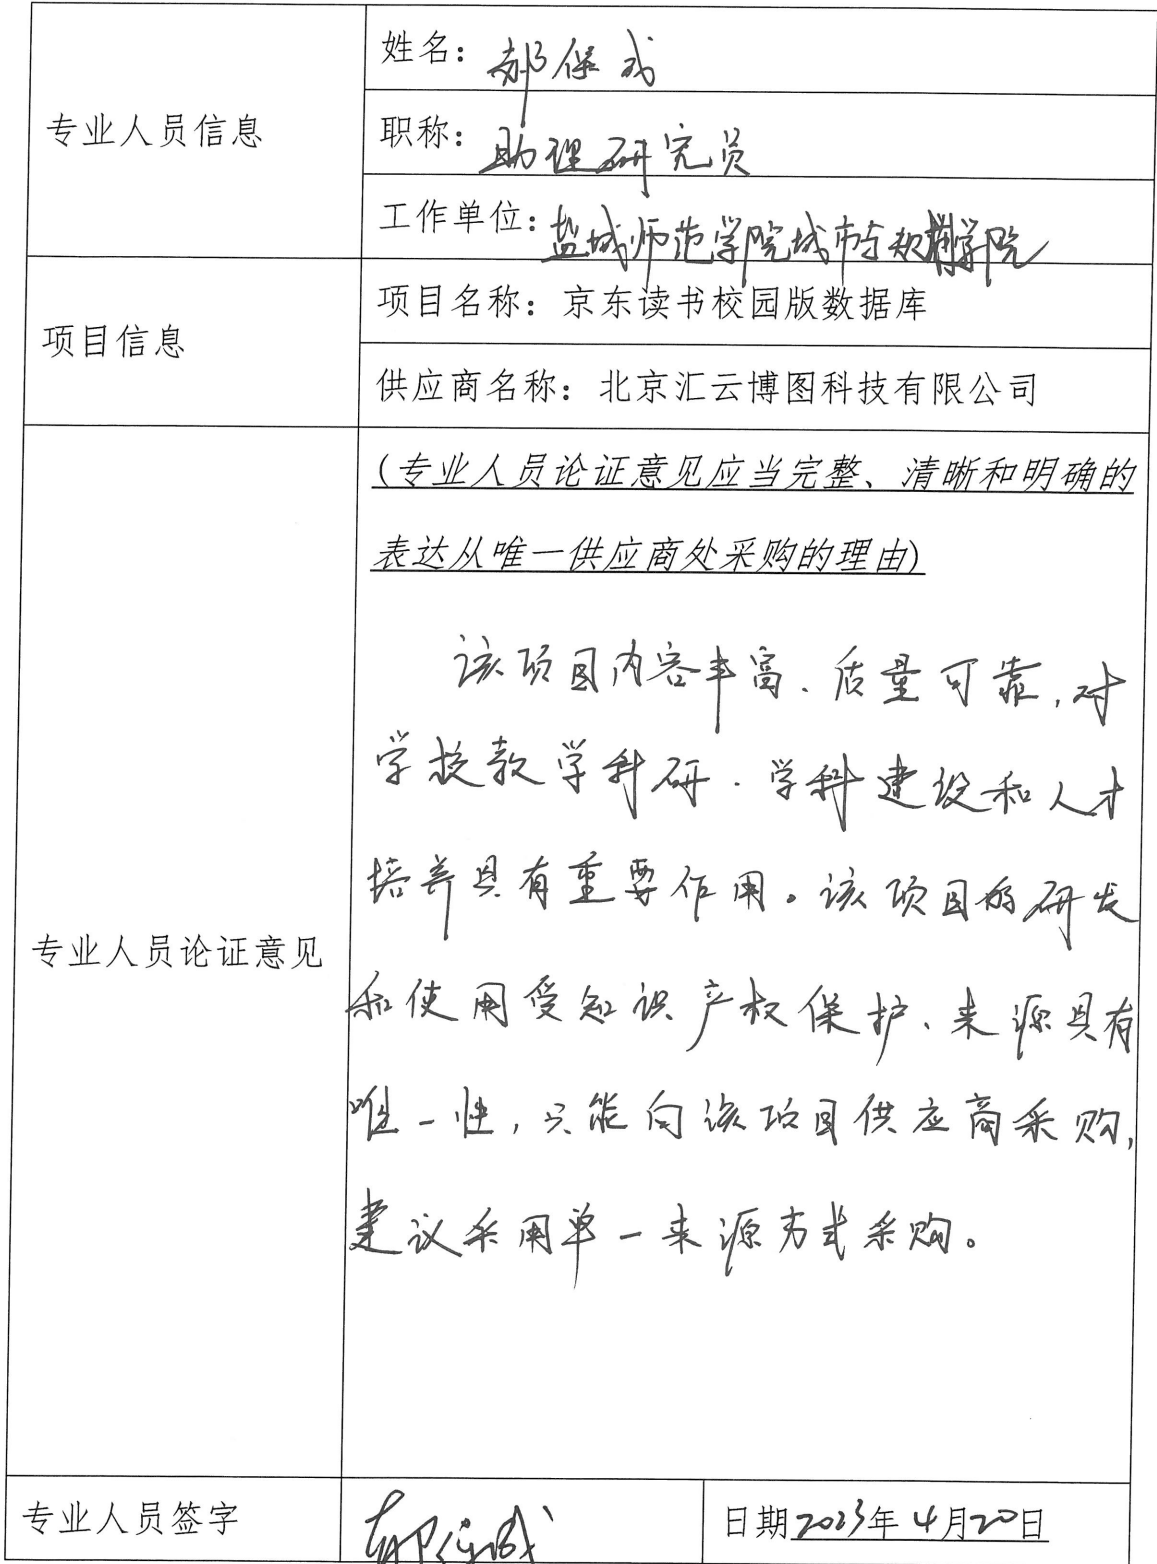 专业人员信息
姓名：郝保成
职称：助理研究员
工作单位：盐城师范学院城市与规划学院
项目信息
项目名称：京东读书校园版数据库
供应商名称：北京汇云博图科技有限公司
专业人员论证意见
(专业人员论证意见应当完整、清晰和明确的
表达从唯一供应商处采购的理由)
该项目内容丰富、质量可靠，对
学校教学科研、学科建设和人才
培养具有重要作用。该项目的研发
和使用受知识产权保护、来源具有
唯一性，只能向该项目供应商采购，
建议采用单一来源方式采购。
专业人员签字
郝保成
日期2023年4月20日